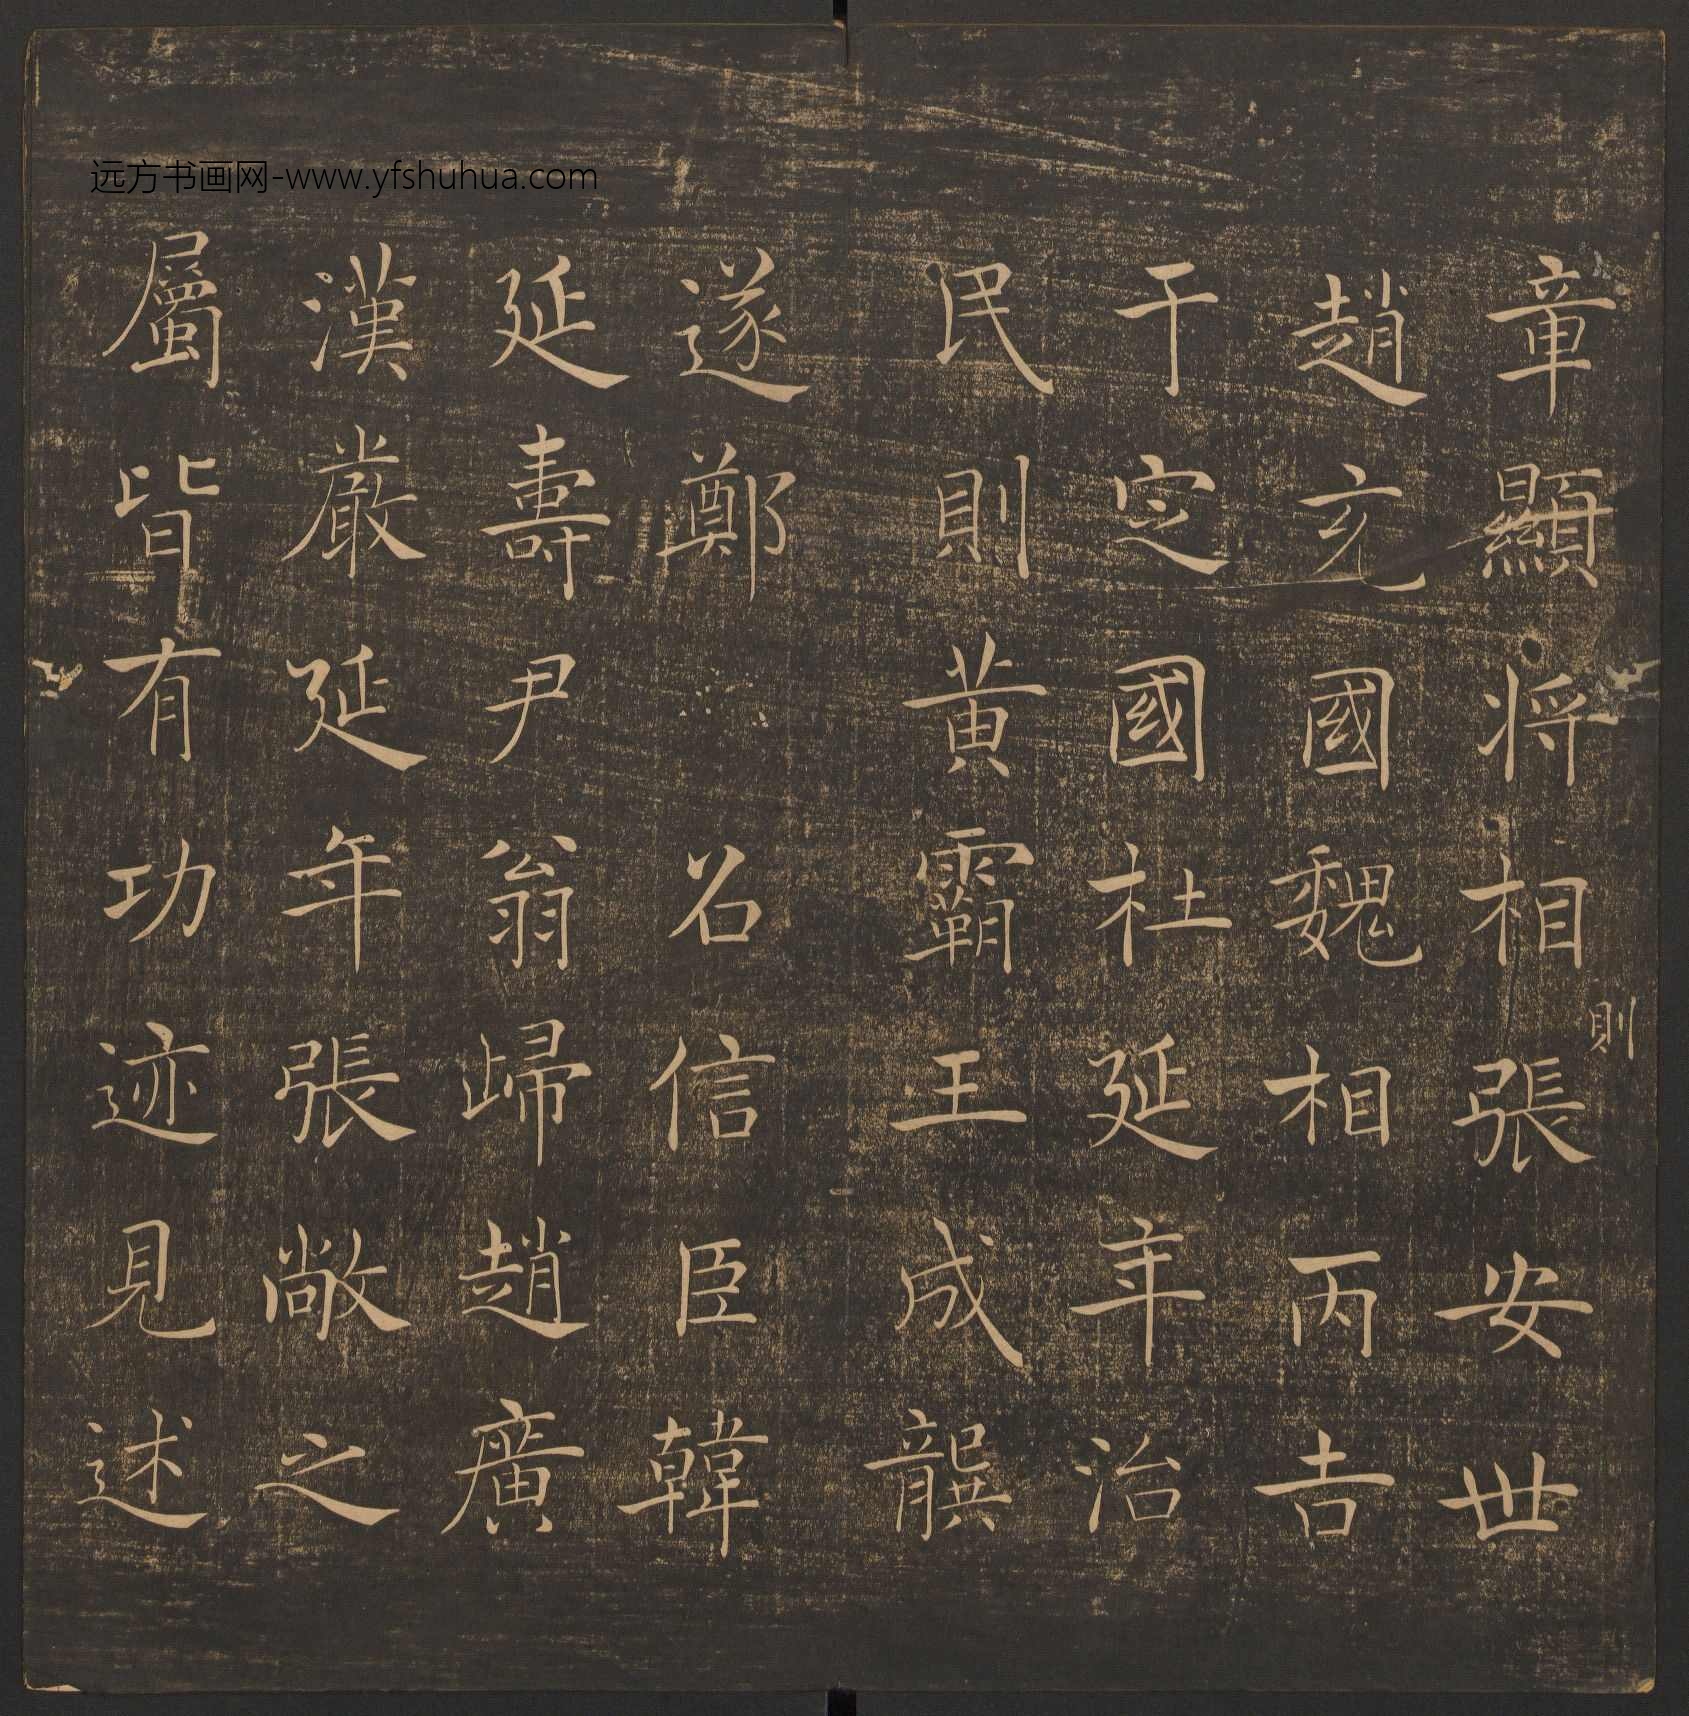 远方书画网-www.yfshuhua.com
章顯将相則張安世
趙充國魏相丙吉
于定國杜延年治
民則黄霸王成龔
遂鄭召信臣韓
延壽尹翁歸趙廣
漢嚴延年張敞之
屬皆有功迹見述